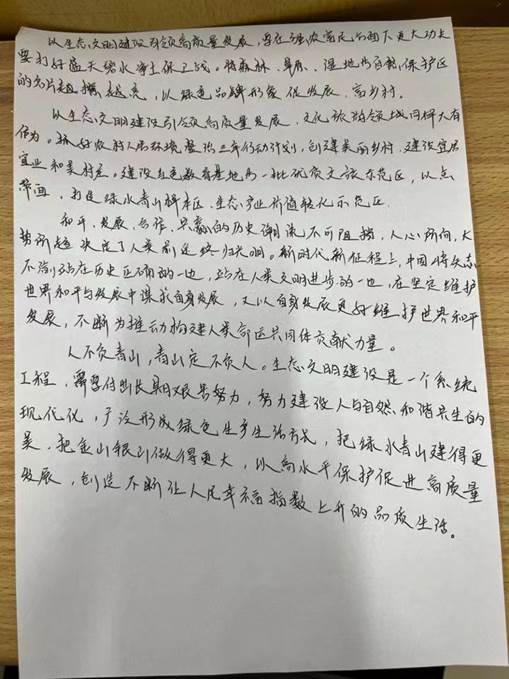 以生态文明建设引领高质量发展，要在强农富民方面下更大功夫
要打好蓝天碧水净土保卫战。将森林、草原、湿地与自然保护区
的名片越擦越亮，以绿色品牌形象促发展、富乡村。
以生态文明建设引领高质量发展，文化旅游领域同样大有
作为。抓好农村人居环境整治三年行动计划，创建美丽乡村，建设宜居
宜业和美村居。建设红色教育基地与一批优质文旅示范区，以点
带面，打造绿水青山样本区、生态产业价值转化示范区。
和平、发展、合作、共赢的历史潮流不可阻挡，人心所向、大
势所趋决定了人类前途终归光明。新时代新征程上，中国将矢志
不渝站在历史正确的一边，站在人类文明进步的一边，在坚定维护
世界和平与发展中谋求自身发展，又以自身发展更好维护世界和平
发展，不断为推动构建人类命运共同体贡献力量。
人不负青山，青山定不负人。生态文明建设是一个系统
工程，需要付出长期艰苦努力，努力建设人与自然和谐共生的
现代化，广泛形成绿色生产生活方式，把绿水青山建得更
美，把金山银山做得更大，以高水平保护促进高质量
发展，创造不断让人民幸福指数上升的品质生活。